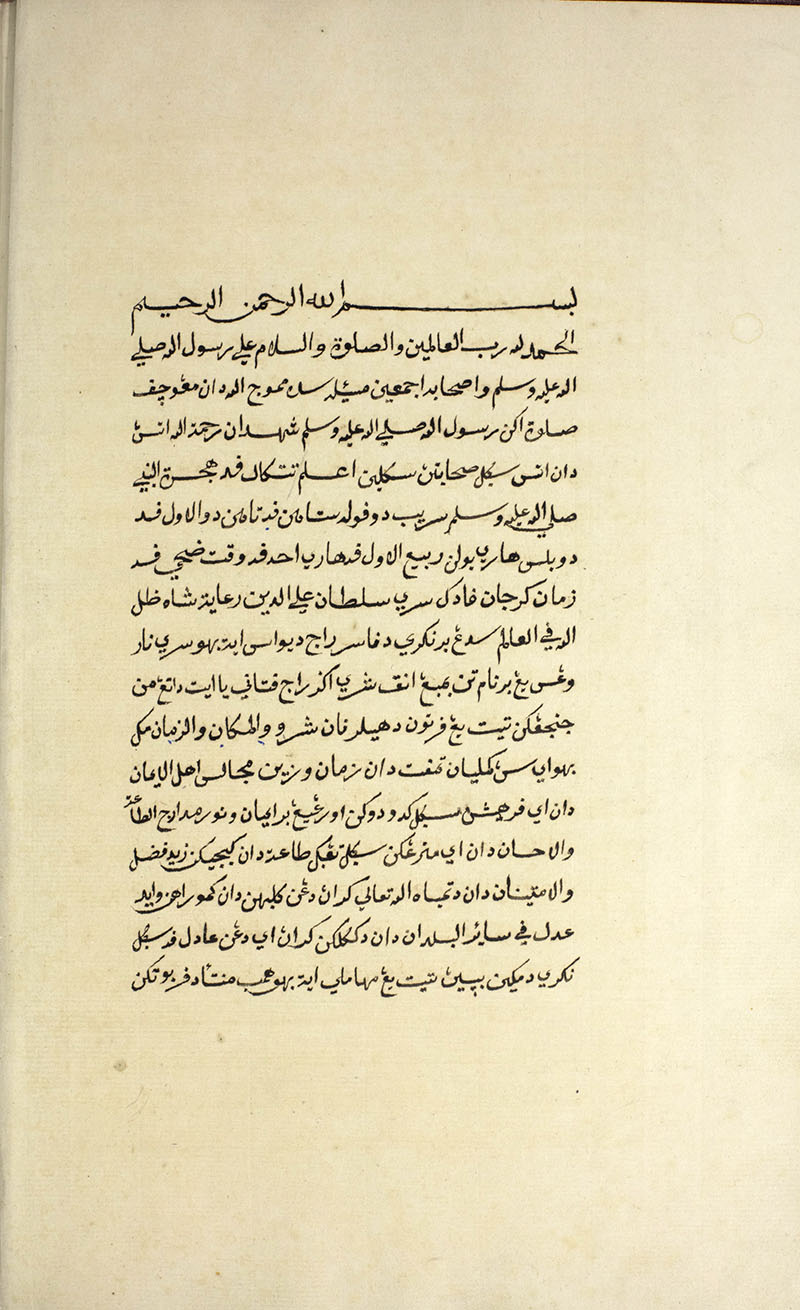 بسم الله الرحمن الرحيم
الحمد لله رب العالمين والصلوة والسلام على رسول الله صلى
الله عليه وسلم واصحابه اجمعين ممج الله دان مڠوچف
صلوة اكن رسول الله صلى الله عليه وسلم شهدان رحمة الله اتس
دان اتس سكل صحابتن سكلين اعلم تتكال فد هجرة النبي
صلى الله عليه وسلم سريب دوفوله ستاهن فد تاهن دوال اول فد
دوبلس هاري بولن ربيع الاول فد هاري احد فد وقت ضحى فد
زمان كرجان فادك سري سلطان علاء الدين رعاية شاه ظل
الله في العالم سدڠ برنكري دفاسر راج ديواس اية بهو سري نار
وڠس يڠ برنام تن بمبڠ انق سري اكر راج فتاني يايت داتڠ من
جنجڠكن تيته يڠ فرتون دهيلر نان شرو والمكان والزمان
بهواي كملياان تمفت دان زمان ورزين مجالس اهل الايمان
دان اي فرهياسن سكل كدودوكن اورڠ يڠ برايمان ونور مدارج الطاعة
والاحسان دان اي منرڠكن سكل تڠك طاعة دان كبجيكن زيد فضله
والامتنان دان دتمباه الله تعالى كران دڠن كلبهن دان كمورهن وابد
عدله في سائر البلدان دان دككلكن كران اي دڠن عادل فد سكل
نكري دمكين بوپين تيته يڠ مهامليا اية بهو همب منتا دفربوتكن